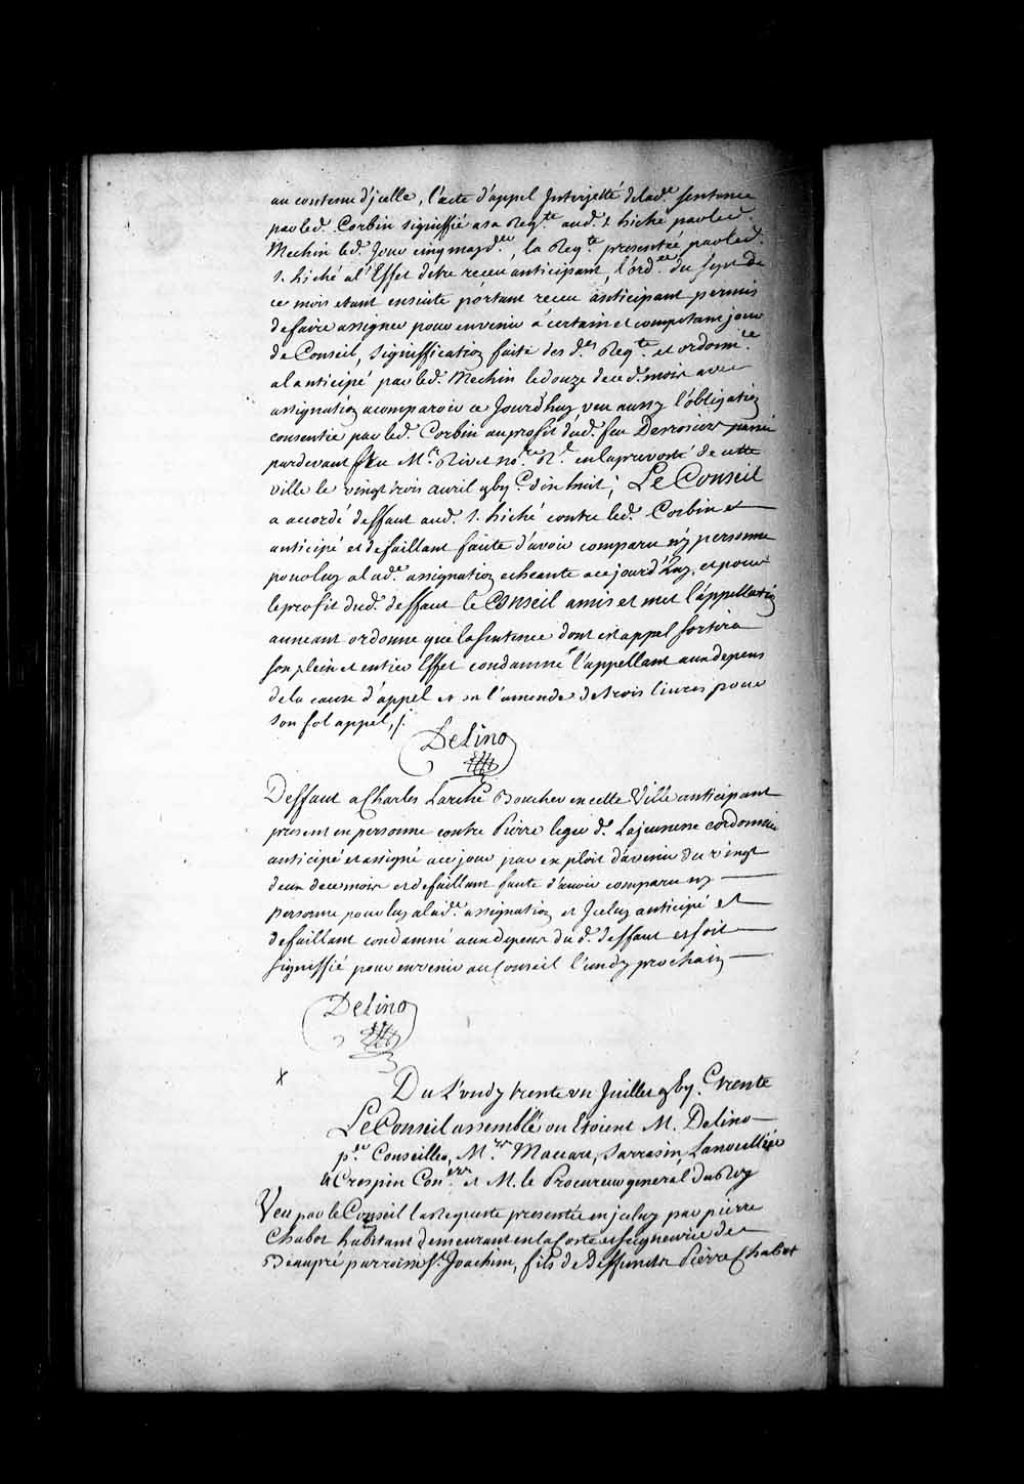 au contenu d'jcelle, l'acte d'appel Interjetté de lade. sentence
par led. Corbin signiffié a sa Reqte. aud. s. hiché par led.
Mechin led. Jour cinq may der., la Reqte. presentée par led.
s. hiché a l'Effet d'etre receu anticipant, l'ordce. du sept de
ce mois etant ensuite portant receu anticipant permis
de faire assigner pour en venir a certain et competant jour
de Conseil, signiffication faite des d. Reqte. et ordonnce.
al anticipé par led. Mechin le douze de ce d. mois avec
assignation a comparoir ce Jourd'huy, veu aussy l'obligation
consentie par led. Corbin au profit dud. feu Desrosier passée
pardevant feu Me. Rivet nore. Rl. en la prevosté de cette
ville le vingt trois avril gbij c. dix huit; Le Conseil
a accordé deffaut aud. s. hiché contre led. Corbin
anticipé et defaillant faute d'avoir comparu ny personne
pour luy a lade. assignation echeante a ce jourd'huy, et pour
le profit dud. deffaut le Conseil a mis et met l'appellation
au neant ordonne que la sentence dont est appel sortira
son plein et entier Effet condamne l'appellant aux depens
de la cause d'appel et en l'amende de trois livres pour
son fol appel, /.
Delino
Deffaut a Charles Larché Boucher en cette Ville anticipant
present en personne contre Pierre leger d. Lajeunesse cordonnier
anticipé et assigné a ce jour par exploit d'avenir du vingt
deux de ce mois et defaillant faute d'avoir comparu ny
personne pour luy a lade. assignation et Jceluy anticipé et
defaillant condamné aux depens du d. deffaut et soit
signiffié pour en venir au Conseil lundy prochain
Delino
x
Du Lundy trente un Juillet gbij. c. trente
Le Conseil assemblé ou Etoient M. Delino
per. Conseiller, Mrs. Macart, Sarrasin, Lanoullier
& Crespin Coners. et M. le Procureur general du Roy
Veu par le Conseil la Requeste presentée en jceluy par pierre
Chabot habitant demeurant en la coste et seigneurie de
Beaupré parroisse St. Joachim, fils de deffuncts Pierre Chabot